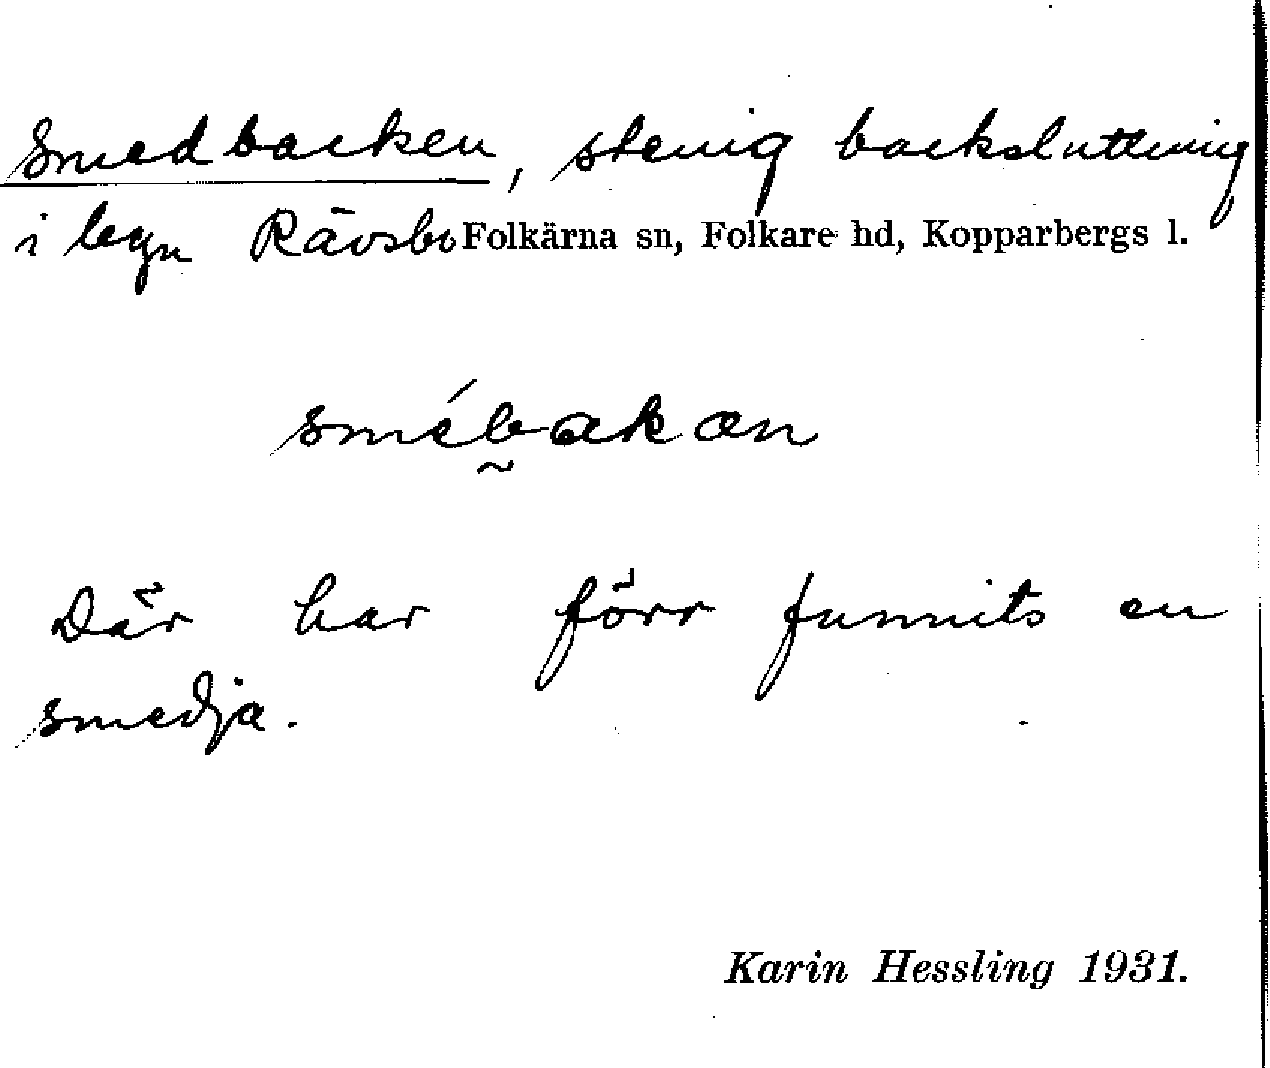 Smedbacken, stenig backsluttning
i byn Rävsbo Folkärna sn, Folkare hd, Kopparbergs l.
smé̀b̰akæn
Där har förr funnits en
smedja.
Karin Hessling 1931.